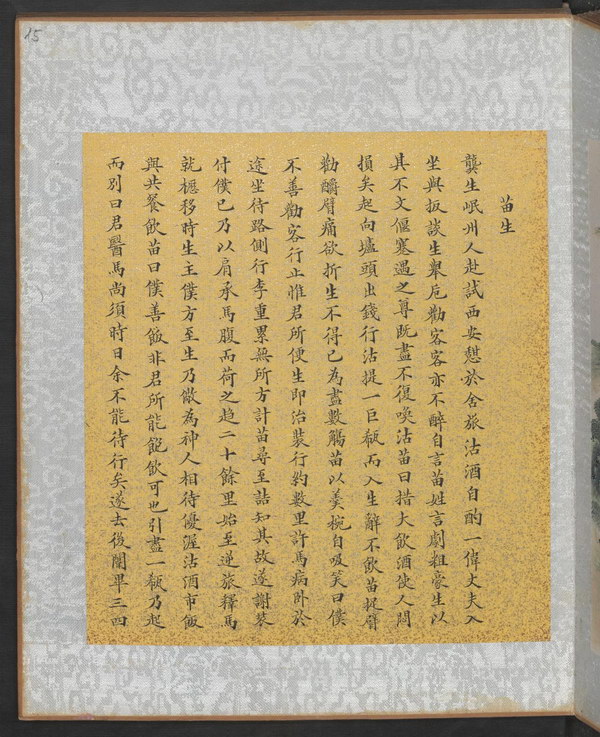 15
苗生
龔生岷州人赴試西安憇於舍旅沽酒自酌一偉丈夫入
坐與扳談生舉卮勸客客亦不醉自言苗姓言劇粗豪生以
其不文偃蹇遇之尊既盡不復喚沽苗曰措大飲酒使人悶
損矣起向壚頭出錢行沽提一巨瓻而入生辭不飲苗捉臂
勸釂臂痛欲折生不得已為盡數觴苗以羹椀自吸笑曰僕
不善勸客行止惟君所便生即治裝行約數里許馬病卧於
途坐待路側行李重累無所方計苗尋至詰知其故遂謝裝
付僕已乃以肩承馬腹而荷之趨二十餘里始至逆旅釋馬
就櫪移時生主僕方至生乃儆為神人相待優渥沽酒市飯
與共餐飲苗曰僕善飯非君所能飽飫可也引盡一瓻乃起
而別曰君醫馬尚須時日余不能待行矣遂去後闈畢三四